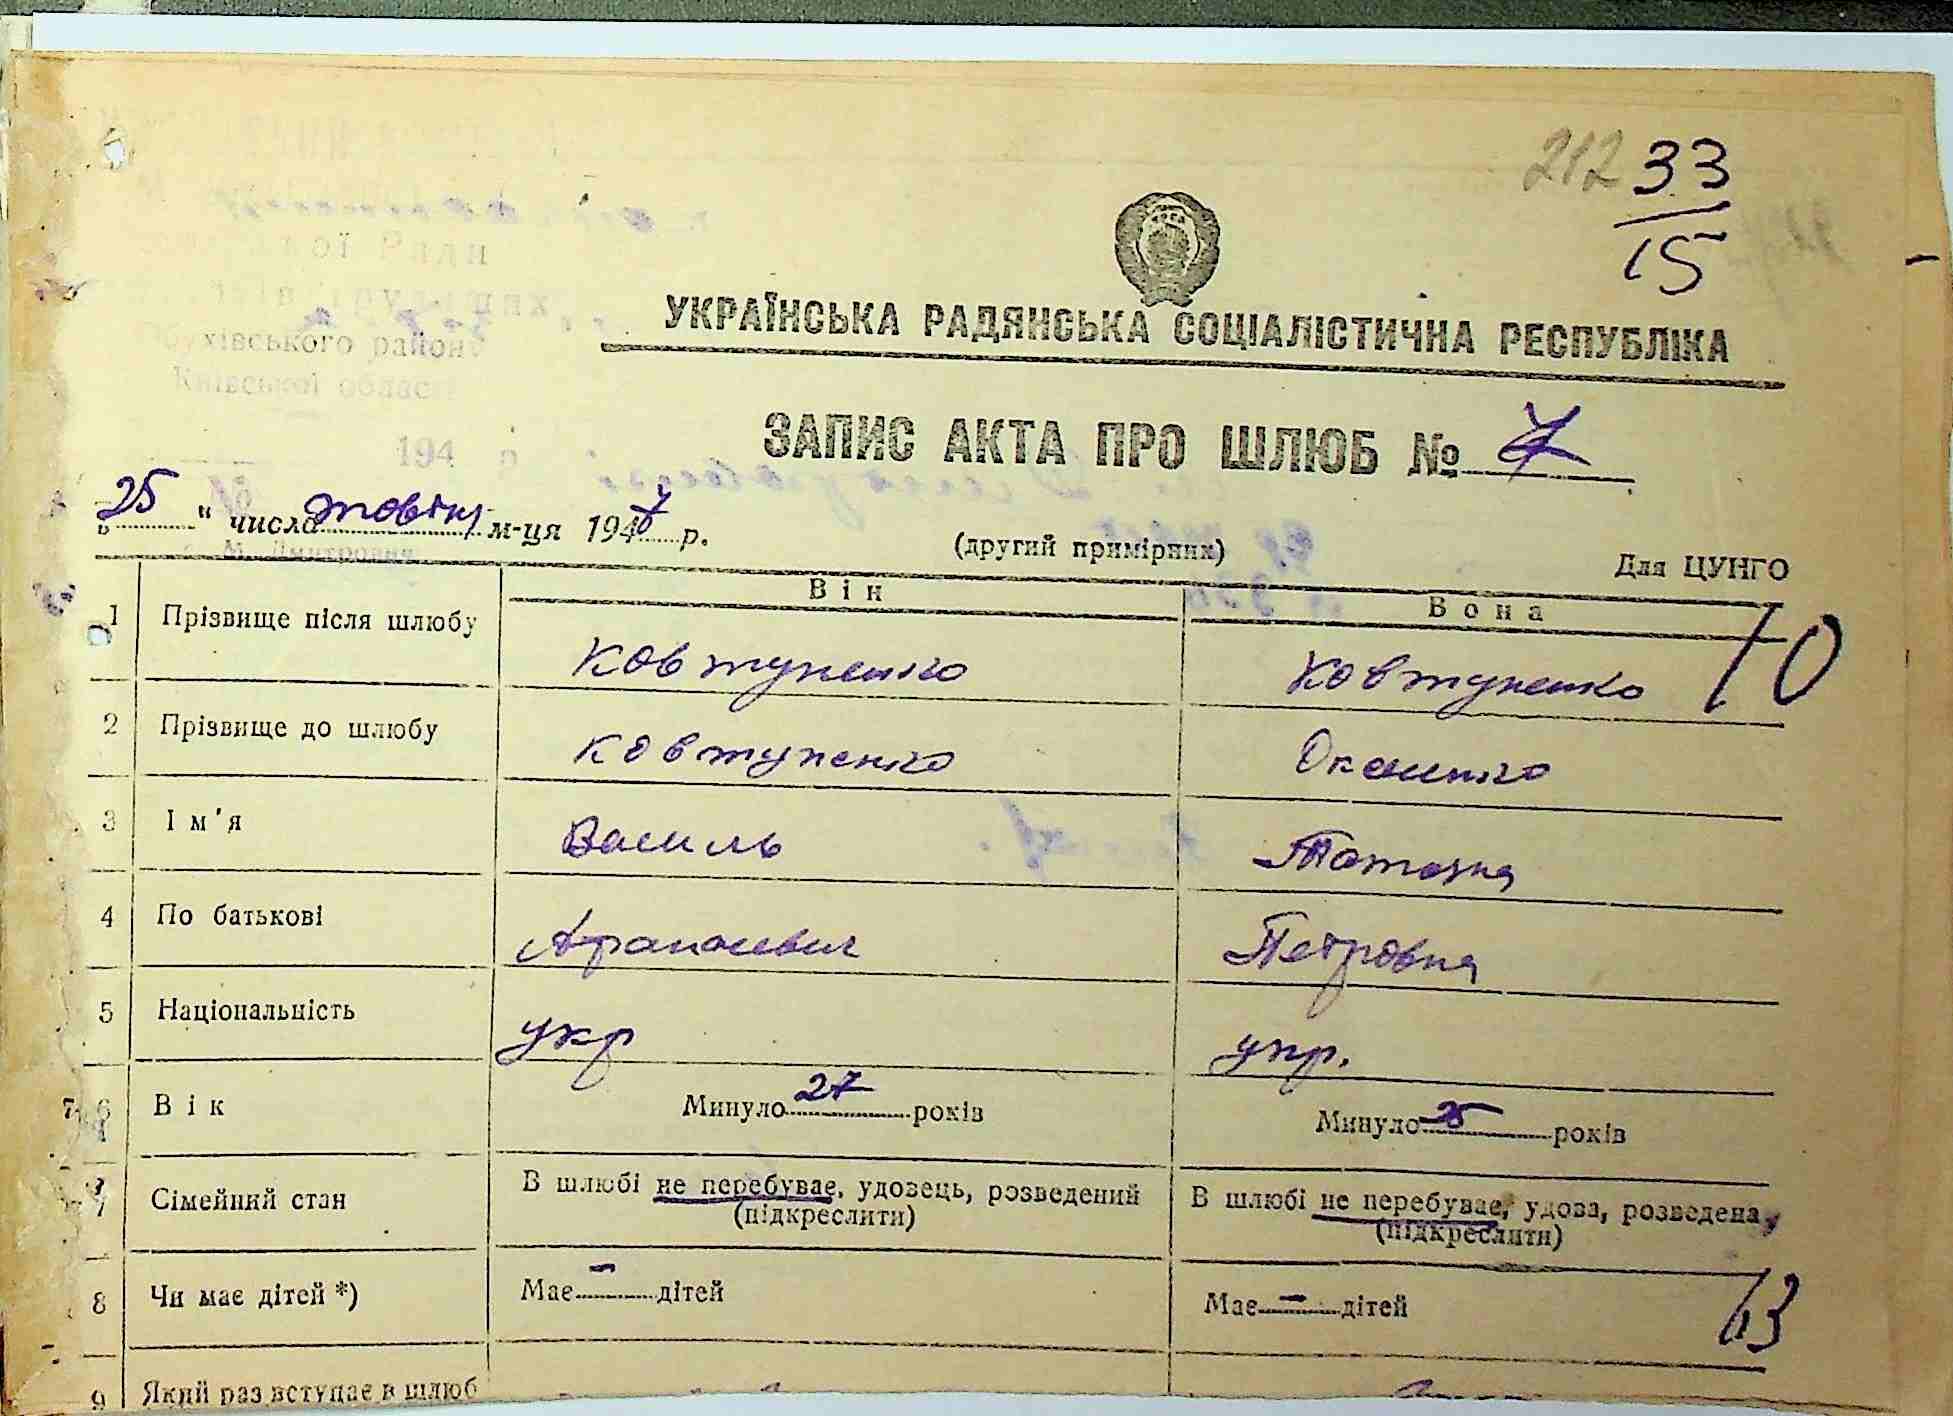 212 33
15
УКРАЇНСЬКА РАДЯНСЬКА СОЦІАЛІСТИЧНА РЕСПУБЛІКА
ЗАПИС АКТА ПРО ШЛЮБ № 7
„25“ числа жовтня м-ця 1947 р.
(другий примірник)
Для ЦУНГО
Він Вона
10
1 Прізвище після шлюбу Ковтуненко Ковтуненко
2 Прізвище до шлюбу Ковтуненко
3 Ім'я Василь Татьяна
4 По батькові Афанасієвич Петровна
5 Національність укр укр.
6 Вік Минуло 27 років Минуло 25 років
7 Сімейний стан В шлюбі не перебуває, удовець, розведений В шлюбі не перебуває, удова, розведена
(підкреслити) (підкреслити)
8 Чи має дітей *) Має - дітей Має - дітей
13
9 Який раз вступає в шлюб
ої Ради
Обухівського району
Київської області
194 р